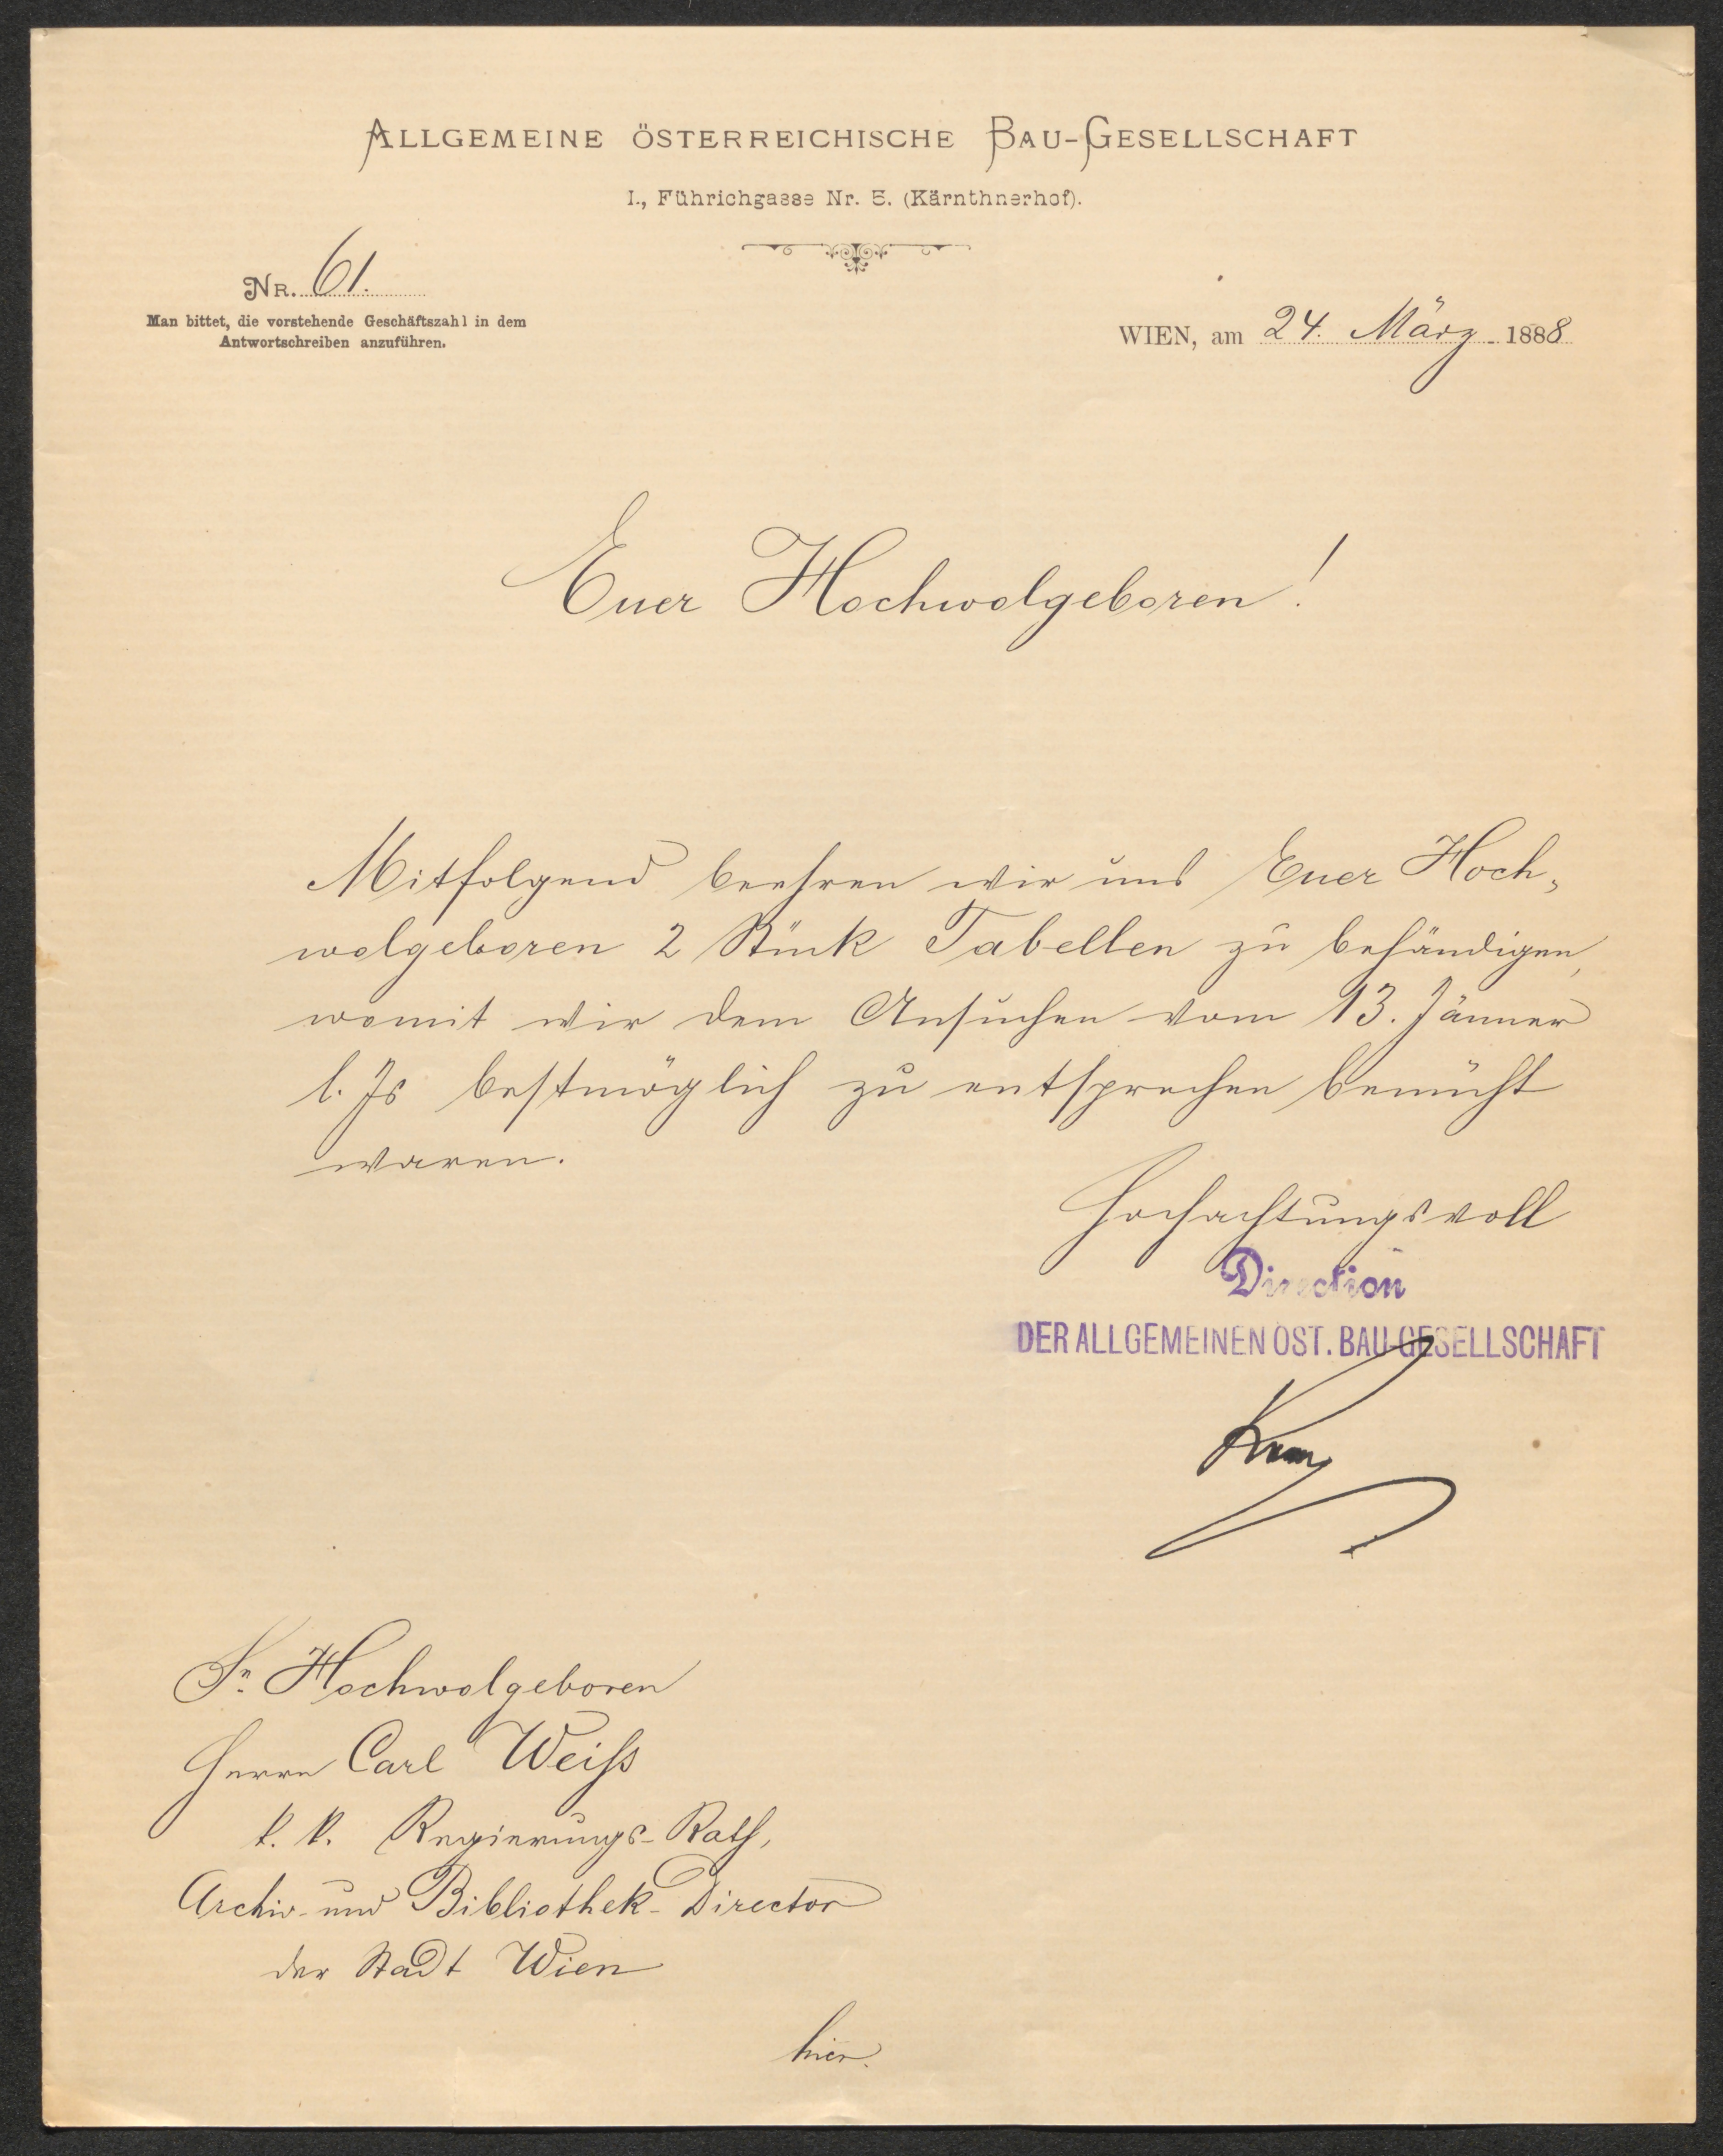 ALLGEMEINE ÖSTERREICHISCHE BAU-GESELLSCHAFT
I., Führichgasse Nr. 5. (Kärnthnerhof).
NR. 61.
Man bittet, die vorstehende Geschäftszahl in dem
Antwortschreiben anzuführen.
WIEN, am 24. März 1888
Euer Hochwolgeboren!
Mitfolgend beehren wir uns Euer Hoch-
wolgeboren 2 Stück Tabellen zu behändigen,
womit wir dem Ansuchen vom 13. Jänner
l. Js bestmöglich zu entsprechen bemüht
waren.
Hochachtungsvoll
Direction
DER ALLGEMEINEN ÖST. BAU-GESELLSCHAFT
Sr. Hochwolgeboren
Herrn Carl Weiss
k. k. Regierungs-Rath,
Archiv- und Bibliothek-Director
der Stadt Wien
hier.